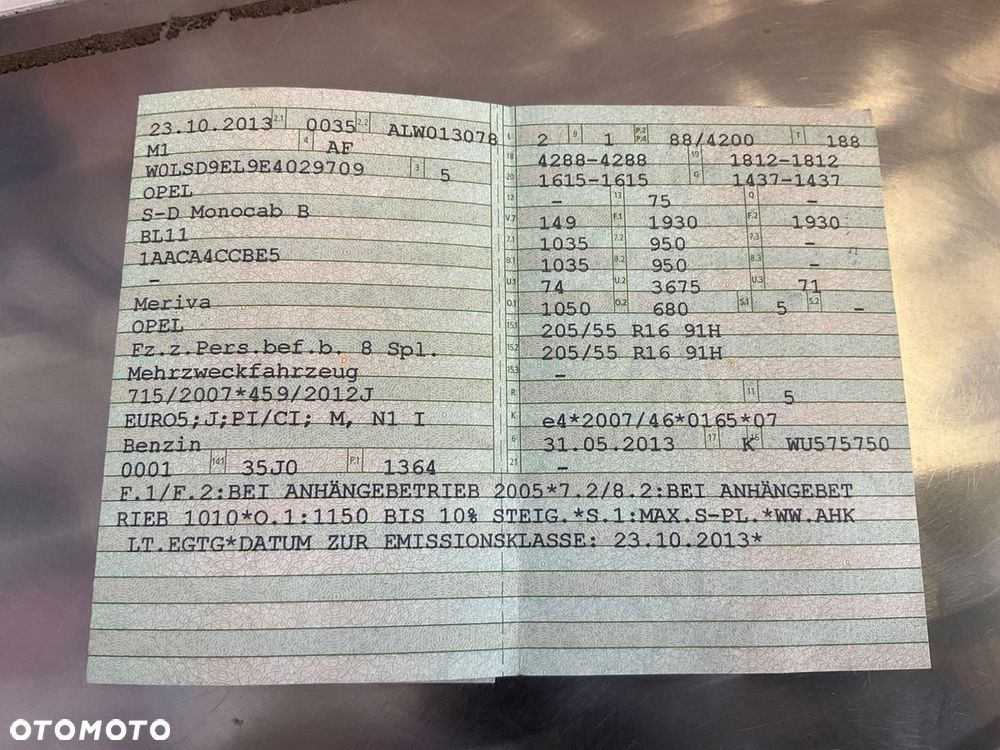 23.10.2013 2.1 0035 2.2 ALW013078
M1 4 AF
W0LSD9EL9E4029709 3 5
OPEL
S-D Monocab B
BL11
1AACA4CCBE5
-
Meriva
OPEL
Fz.z.Pers.bef.b. 8 Spl.
Mehrzweckfahrzeug
715/2007*459/2012J
EURO5;J;PI/CI; M, N1 I
Benzin
0001 14.1 35J0 P.1 1364
L 2 9 1 P.2 P.4 88/4200 T 188
18 4288-4288 19 1812-1812
20 1615-1615 G 1437-1437
12 - 13 75 Q -
V.7 149 F.1 1930 F.2 1930
7.1 1035 7.2 950 7.3 -
8.1 1035 8.2 950 8.3 -
U.1 74 U.2 3675 U.3 71
O.1 1050 O.2 680 S.1 5 S.2 -
15.1 205/55 R16 91H
15.2 205/55 R16 91H
15.3 -
R 11 5
K e4*2007/46*0165*07
6 31.05.2013 17 K 16 WU575750
21 -
F.1/F.2:BEI ANHÄNGEBETRIEB 2005*7.2/8.2:BEI ANHÄNGEBET
RIEB 1010*O.1:1150 BIS 10% STEIG.*S.1:MAX.S-PL.*WW.AHK
LT.EGTG*DATUM ZUR EMISSIONSKLASSE: 23.10.2013*
OTOMOTO